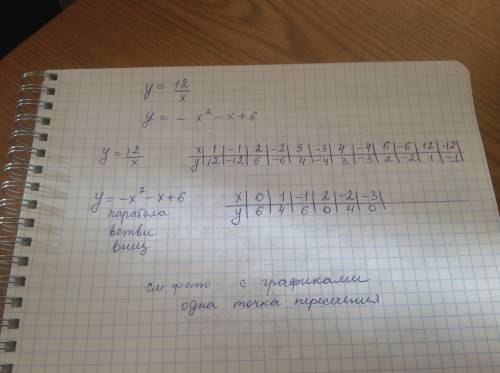 y = 12/x
y = - x² - x + 6
y = 12/x
x | 1 | -1 | 2 | -2 | 3 | -3 | 4 | -4 | 6 | -6 | 12 | -12
y | 12 | -12 | 6 | -6 | 4 | -4 | 3 | -3 | 2 | -2 | 1 | -1
y = -x² - x + 6
x | 0 | 1 | -1 | 2 | -2 | -3
y | 6 | 4 | 6 | 0 | 4 | 0
парабола
ветви
вниз
см фото с графиками
одна точка пересечения